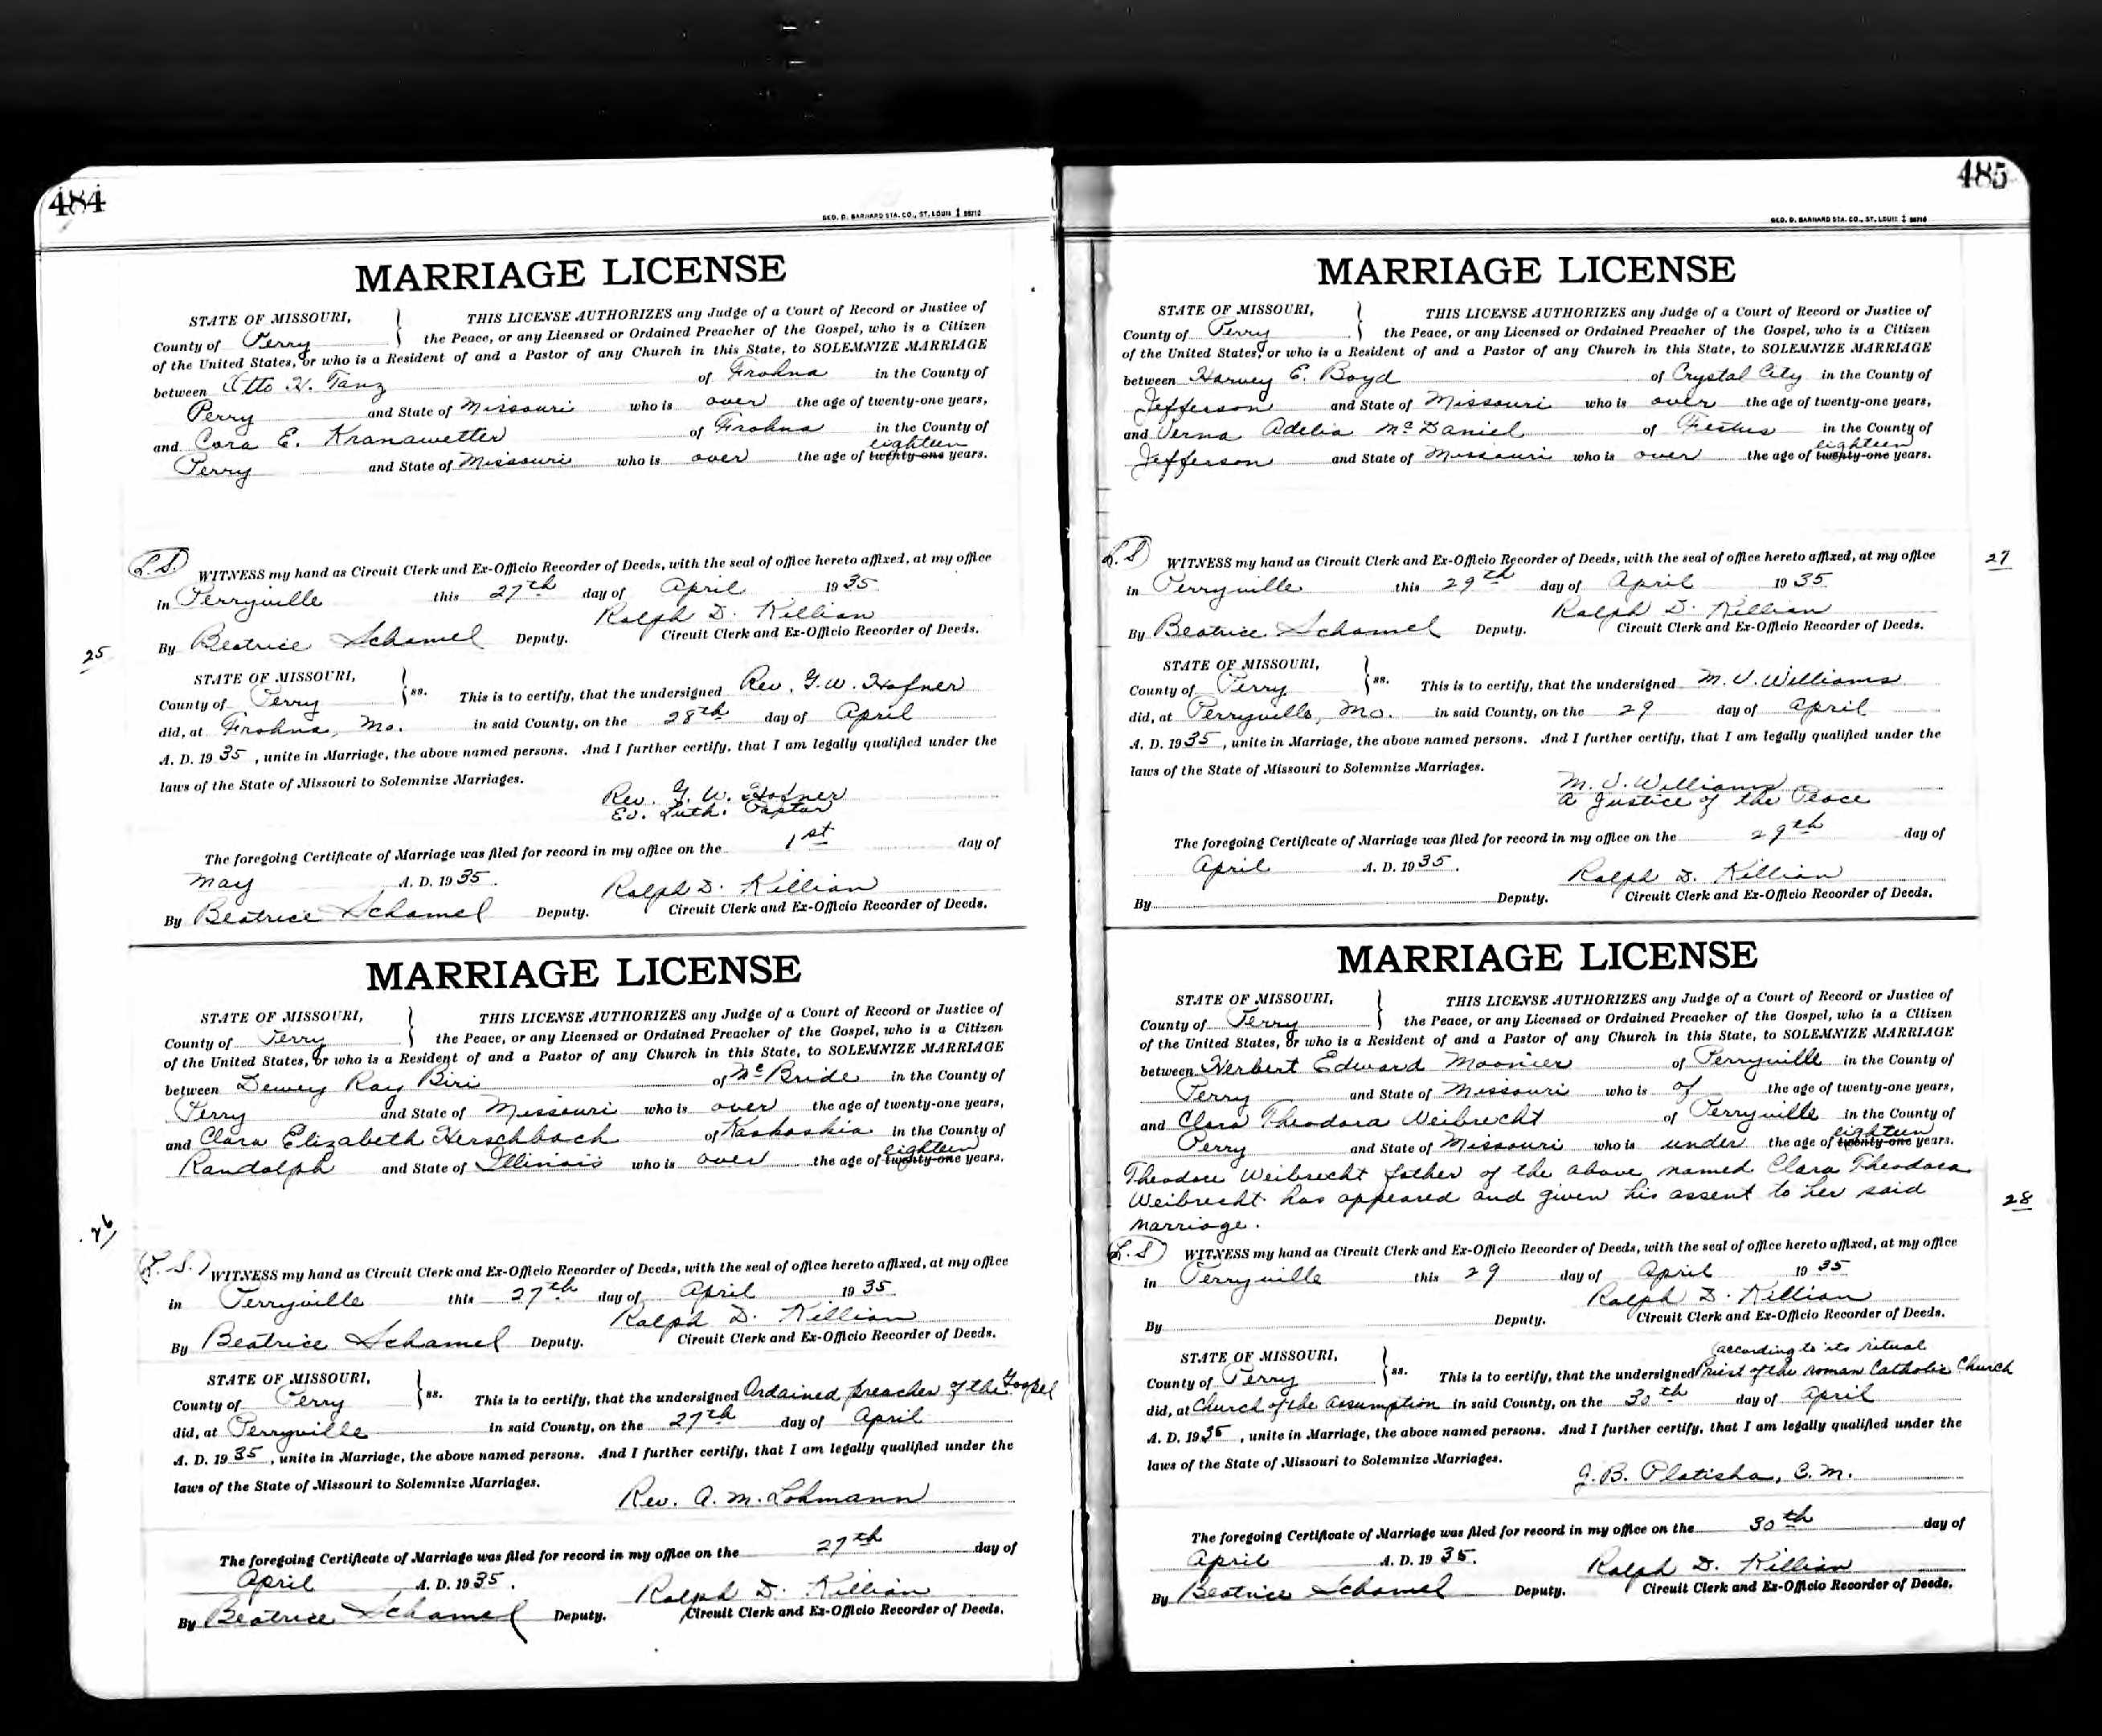 484
GEO. D. BARNARD STA. CO., ST. LOUIS
MARRIAGE LICENSE
STATE OF MISSOURI, THIS LICENSE AUTHORIZES any Judge of a Court of Record or Justice of
County of Perry the Peace, or any Licensed or Ordained Preacher of the Gospel, who is a Citizen
of the United States, or who is a Resident of and a Pastor of any Church in this State, to SOLEMNIZE MARRIAGE
between Otto H. Tanz of Frohna in the County of
Perry and State of Missouri who is over the age of twenty-one years,
and Cora E. Kranawetter of Frohna in the County of
eighteen
Perry and State of Missouri who is over the age of twenty-one years.
L.S. WITNESS my hand as Circuit Clerk and Ex-Officio Recorder of Deeds, with the seal of office hereto affixed, at my office
in Perryville this 27th day of April 1935
Ralph D. Killian
By Beatrice Schamel Deputy. Circuit Clerk and Ex-Officio Recorder of Deeds.
25
STATE OF MISSOURI,
County of Perry ss. This is to certify, that the undersigned Rev. G. W. Hafner
did, at Frohna, Mo. in said County, on the 28th day of April
A. D. 1935, unite in Marriage, the above named persons. And I further certify, that I am legally qualified under the
laws of the State of Missouri to Solemnize Marriages.
Rev. G. W. Hafner
Ev. Luth. Pastor
The foregoing Certificate of Marriage was filed for record in my office on the 1st day of
May A. D. 1935.
Ralph D. Killian
By Beatrice Schamel Deputy. Circuit Clerk and Ex-Officio Recorder of Deeds.
MARRIAGE LICENSE
STATE OF MISSOURI, THIS LICENSE AUTHORIZES any Judge of a Court of Record or Justice of
County of Perry the Peace, or any Licensed or Ordained Preacher of the Gospel, who is a Citizen
of the United States, or who is a Resident of and a Pastor of any Church in this State, to SOLEMNIZE MARRIAGE
between Dewey Ray Biri of McBride in the County of
Perry and State of Missouri who is over the age of twenty-one years,
and Clara Elizabeth Herschbach of Kaskaskia in the County of
eighteen
Randolph and State of Illinois who is over the age of twenty-one years.
26
L.S. WITNESS my hand as Circuit Clerk and Ex-Officio Recorder of Deeds, with the seal of office hereto affixed, at my office
in Perryville this 27th day of April 1935
Ralph D. Killian
By Beatrice Schamel Deputy. Circuit Clerk and Ex-Officio Recorder of Deeds.
STATE OF MISSOURI,
County of Perry ss. This is to certify, that the undersigned Ordained preacher of the Gospel
did, at Perryville in said County, on the 27th day of April
A. D. 1935, unite in Marriage, the above named persons. And I further certify, that I am legally qualified under the
laws of the State of Missouri to Solemnize Marriages.
Rev. A. M. Lohmann
The foregoing Certificate of Marriage was filed for record in my office on the 27th day of
April A. D. 1935.
Ralph D. Killian
By Beatrice Schamel Deputy. Circuit Clerk and Ex-Officio Recorder of Deeds.
485
GEO. D. BARNARD STA. CO., ST. LOUIS
MARRIAGE LICENSE
STATE OF MISSOURI, THIS LICENSE AUTHORIZES any Judge of a Court of Record or Justice of
County of Perry the Peace, or any Licensed or Ordained Preacher of the Gospel, who is a Citizen
of the United States, or who is a Resident of and a Pastor of any Church in this State, to SOLEMNIZE MARRIAGE
between Harvey E. Boyd of Crystal City in the County of
Jefferson and State of Missouri who is over the age of twenty-one years,
and Verna Adelia McDaniel of Festus in the County of
eighteen
Jefferson and State of Missouri who is over the age of twenty-one years.
L.S. WITNESS my hand as Circuit Clerk and Ex-Officio Recorder of Deeds, with the seal of office hereto affixed, at my office
27
in Perryville this 29th day of April 1935
Ralph D. Killian
By Beatrice Schamel Deputy. Circuit Clerk and Ex-Officio Recorder of Deeds.
STATE OF MISSOURI,
County of Perry ss. This is to certify, that the undersigned M. V. Williams
did, at Perryville, Mo. in said County, on the 29 day of April
A. D. 1935, unite in Marriage, the above named persons. And I further certify, that I am legally qualified under the
laws of the State of Missouri to Solemnize Marriages.
M. V. Williams
A Justice of the Peace
The foregoing Certificate of Marriage was filed for record in my office on the 29th day of
April A. D. 1935.
Ralph D. Killian
By Deputy. Circuit Clerk and Ex-Officio Recorder of Deeds.
MARRIAGE LICENSE
STATE OF MISSOURI, THIS LICENSE AUTHORIZES any Judge of a Court of Record or Justice of
County of Perry the Peace, or any Licensed or Ordained Preacher of the Gospel, who is a Citizen
of the United States, or who is a Resident of and a Pastor of any Church in this State, to SOLEMNIZE MARRIAGE
between Herbert Edward Moonier of Perryville in the County of
Perry and State of Missouri who is of the age of twenty-one years,
and Clara Theodora Weibrecht of Perryville in the County of
eighteen
Perry and State of Missouri who is under the age of twenty-one years.
Theodore Weibrecht father of the above named Clara Theodora
Weibrecht has appeared and given his assent to her said
marriage.
28
L.S WITNESS my hand as Circuit Clerk and Ex-Officio Recorder of Deeds, with the seal of office hereto affixed, at my office
in Perryville this 29 day of April 1935
Ralph D. Killian
By Deputy. Circuit Clerk and Ex-Officio Recorder of Deeds.
according to its ritual
STATE OF MISSOURI,
County of Perry ss. This is to certify, that the undersigned Priest of the Roman Catholic Church
did, at Church of the Assumption in said County, on the 30th day of April
A. D. 1935, unite in Marriage, the above named persons. And I further certify, that I am legally qualified under the
laws of the State of Missouri to Solemnize Marriages.
J. B. Platisha, C. M.
The foregoing Certificate of Marriage was filed for record in my office on the 30th day of
April A. D. 1935.
Ralph D. Killian
By Beatrice Schamel Deputy. Circuit Clerk and Ex-Officio Recorder of Deeds.